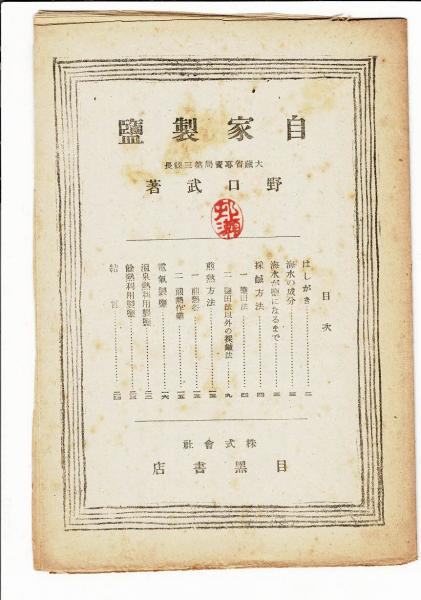 自家製鹽
大藏省專賣局第三課長
野口武著
目次
はしがき…………二
海水の成分…………三
海水が鹽になるまで…………三
採鹹方法…………四
一 鹽田法…………四
二 鹽田法以外の採鹹法…………九
煎熬方法…………一三
一 煎熬釜…………一三
二 煎熬作業…………一五
電氣製鹽…………一六
溫泉熱利用製鹽…………二二
餘熱利用製鹽
結言
株式會社
目黑書店